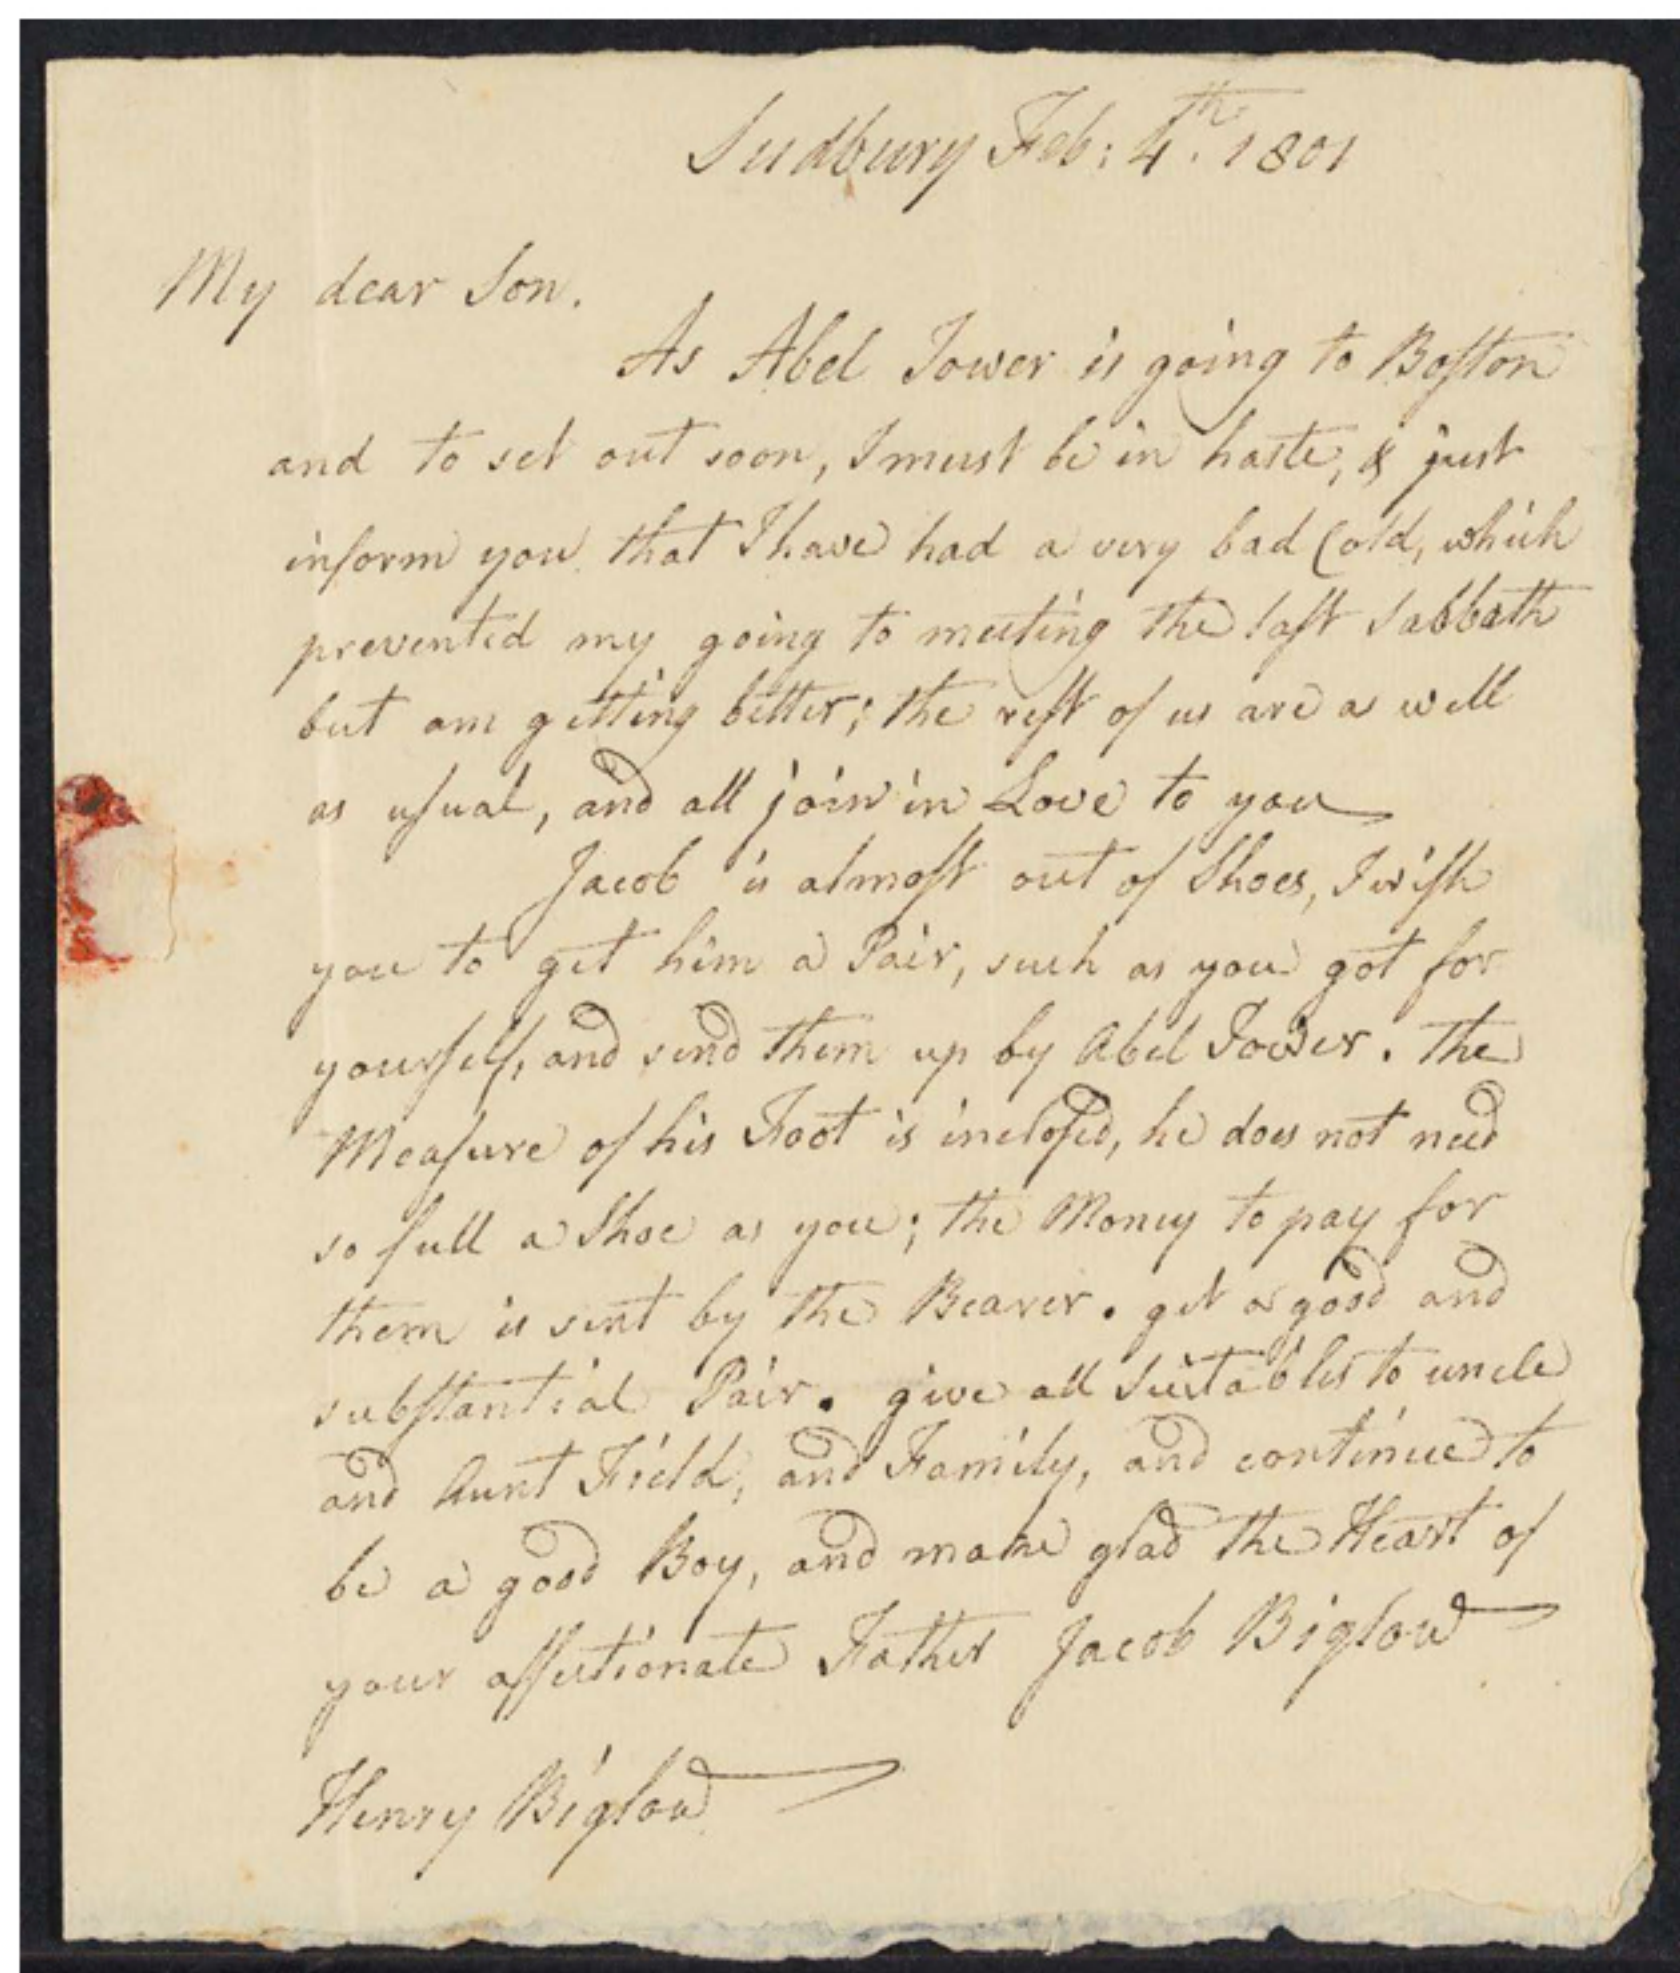 Sudbury Feb: 4th. 1801
My dear Son.
As Abel Tower is going to Boston
and to set out soon, I must be in haste, & just
inform you that I have had a very bad Cold, which
prevented my going to meeting the last Sabbath
but am getting better; the rest of us are as well
as usual, and all join in Love to you
Jacob is almost out of Shoes, I wish
you to get him a Pair, such as you got for
yourself, and send them up by Abel Tower. The
Measure of his Foot is inclosed, he does not need
so full a Shoe as you; the Money to pay for
them is sent by the Bearer. get a good and
substantial Pair. give all Suitables to uncle
and Aunt Field, and Family, and continue to
be a good Boy, and make glad the Heart of
your affectionate Father Jacob Biglow
Henry Biglow